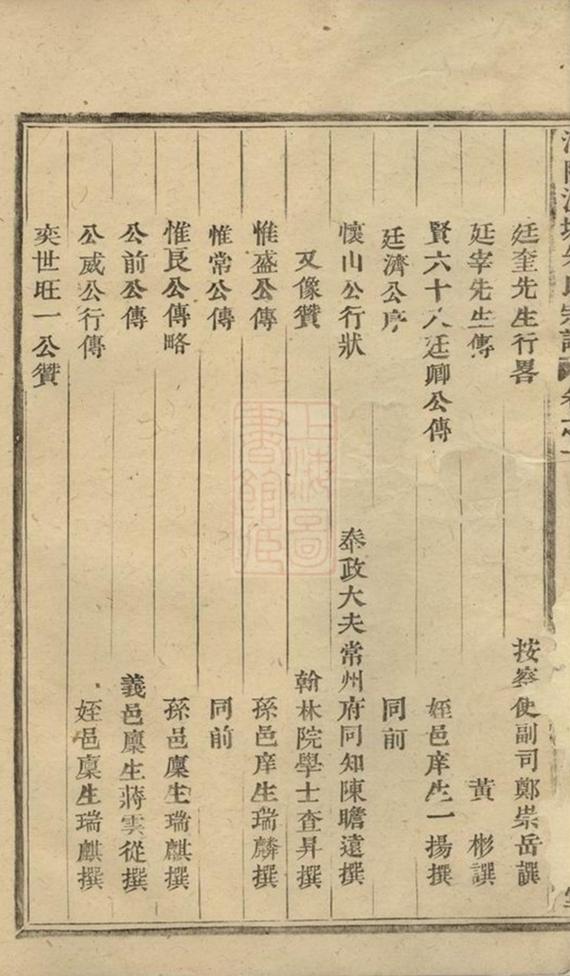 廷奎先生行畧 按察使副司鄭崇岳譔
廷宰先生傳 黃彬譔
賢六十八廷卿公傳 姪邑庠生一揚撰
廷濟公序 同前
懷山公行狀 奉政大夫常州府同知陳瞻遠撰
又像贊 翰林院學士查昇撰
惟盛公傳 孫邑庠生瑞麟撰
惟常公傳 同前
惟良公傳略 孫邑廩生瑞麒撰
公前公傳 義邑廩生蔣雲從撰
公威公行傳 姪邑廩生瑞麒撰
奕世旺一公贊
上海圖書館藏